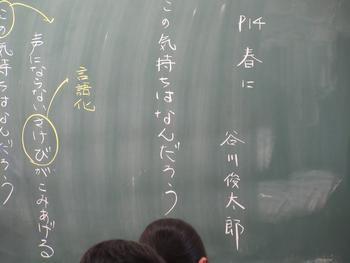 P14 春に
谷川俊太郎
この気持ちはなんだろう
言語化
声にならないさけびがこみあげる
この気持ちはなんだろう